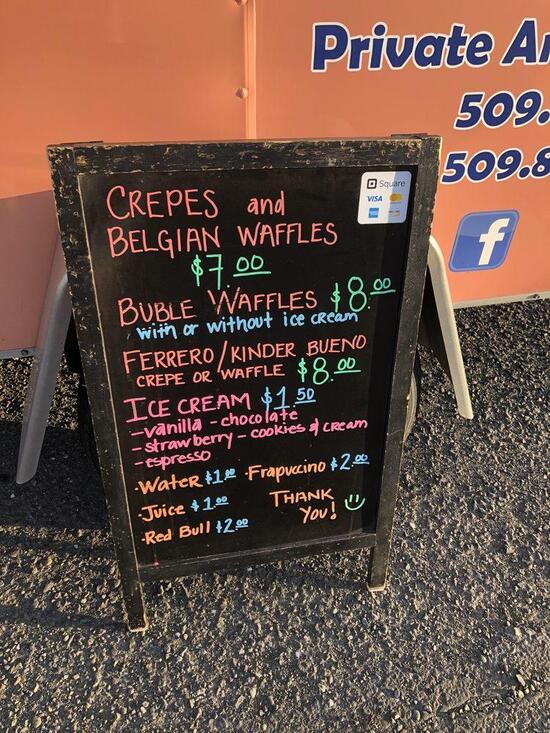 Private
509.
509.8
Square
VISA
CREPES and
BELGIAN WAFFLES
$7.00
BUBLE WAFFLES $8.00
with or without ice cream
FERRERO/KINDER BUENO
CREPE OR WAFFLE $8.00
ICE CREAM $1.50
-vanilla -chocolate
-strawberry -cookies & cream
-espresso
·Water $1.00 ·Frapuccino $2.00
·Juice $1.00 THANK
YOU!
·Red Bull $2.00